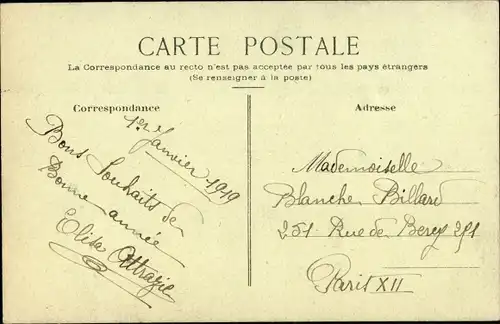 CARTE POSTALE
La Correspondance au recto n'est pas acceptée par tous les pays étrangers
(Se renseigner à la poste)
Correspondance
1er Janvier 1919
Bons Souhaits de
Bonne année
Elisa
Adresse
Mademoiselle
Blanche Billard
251 Rue de Bercy 251
Paris XII